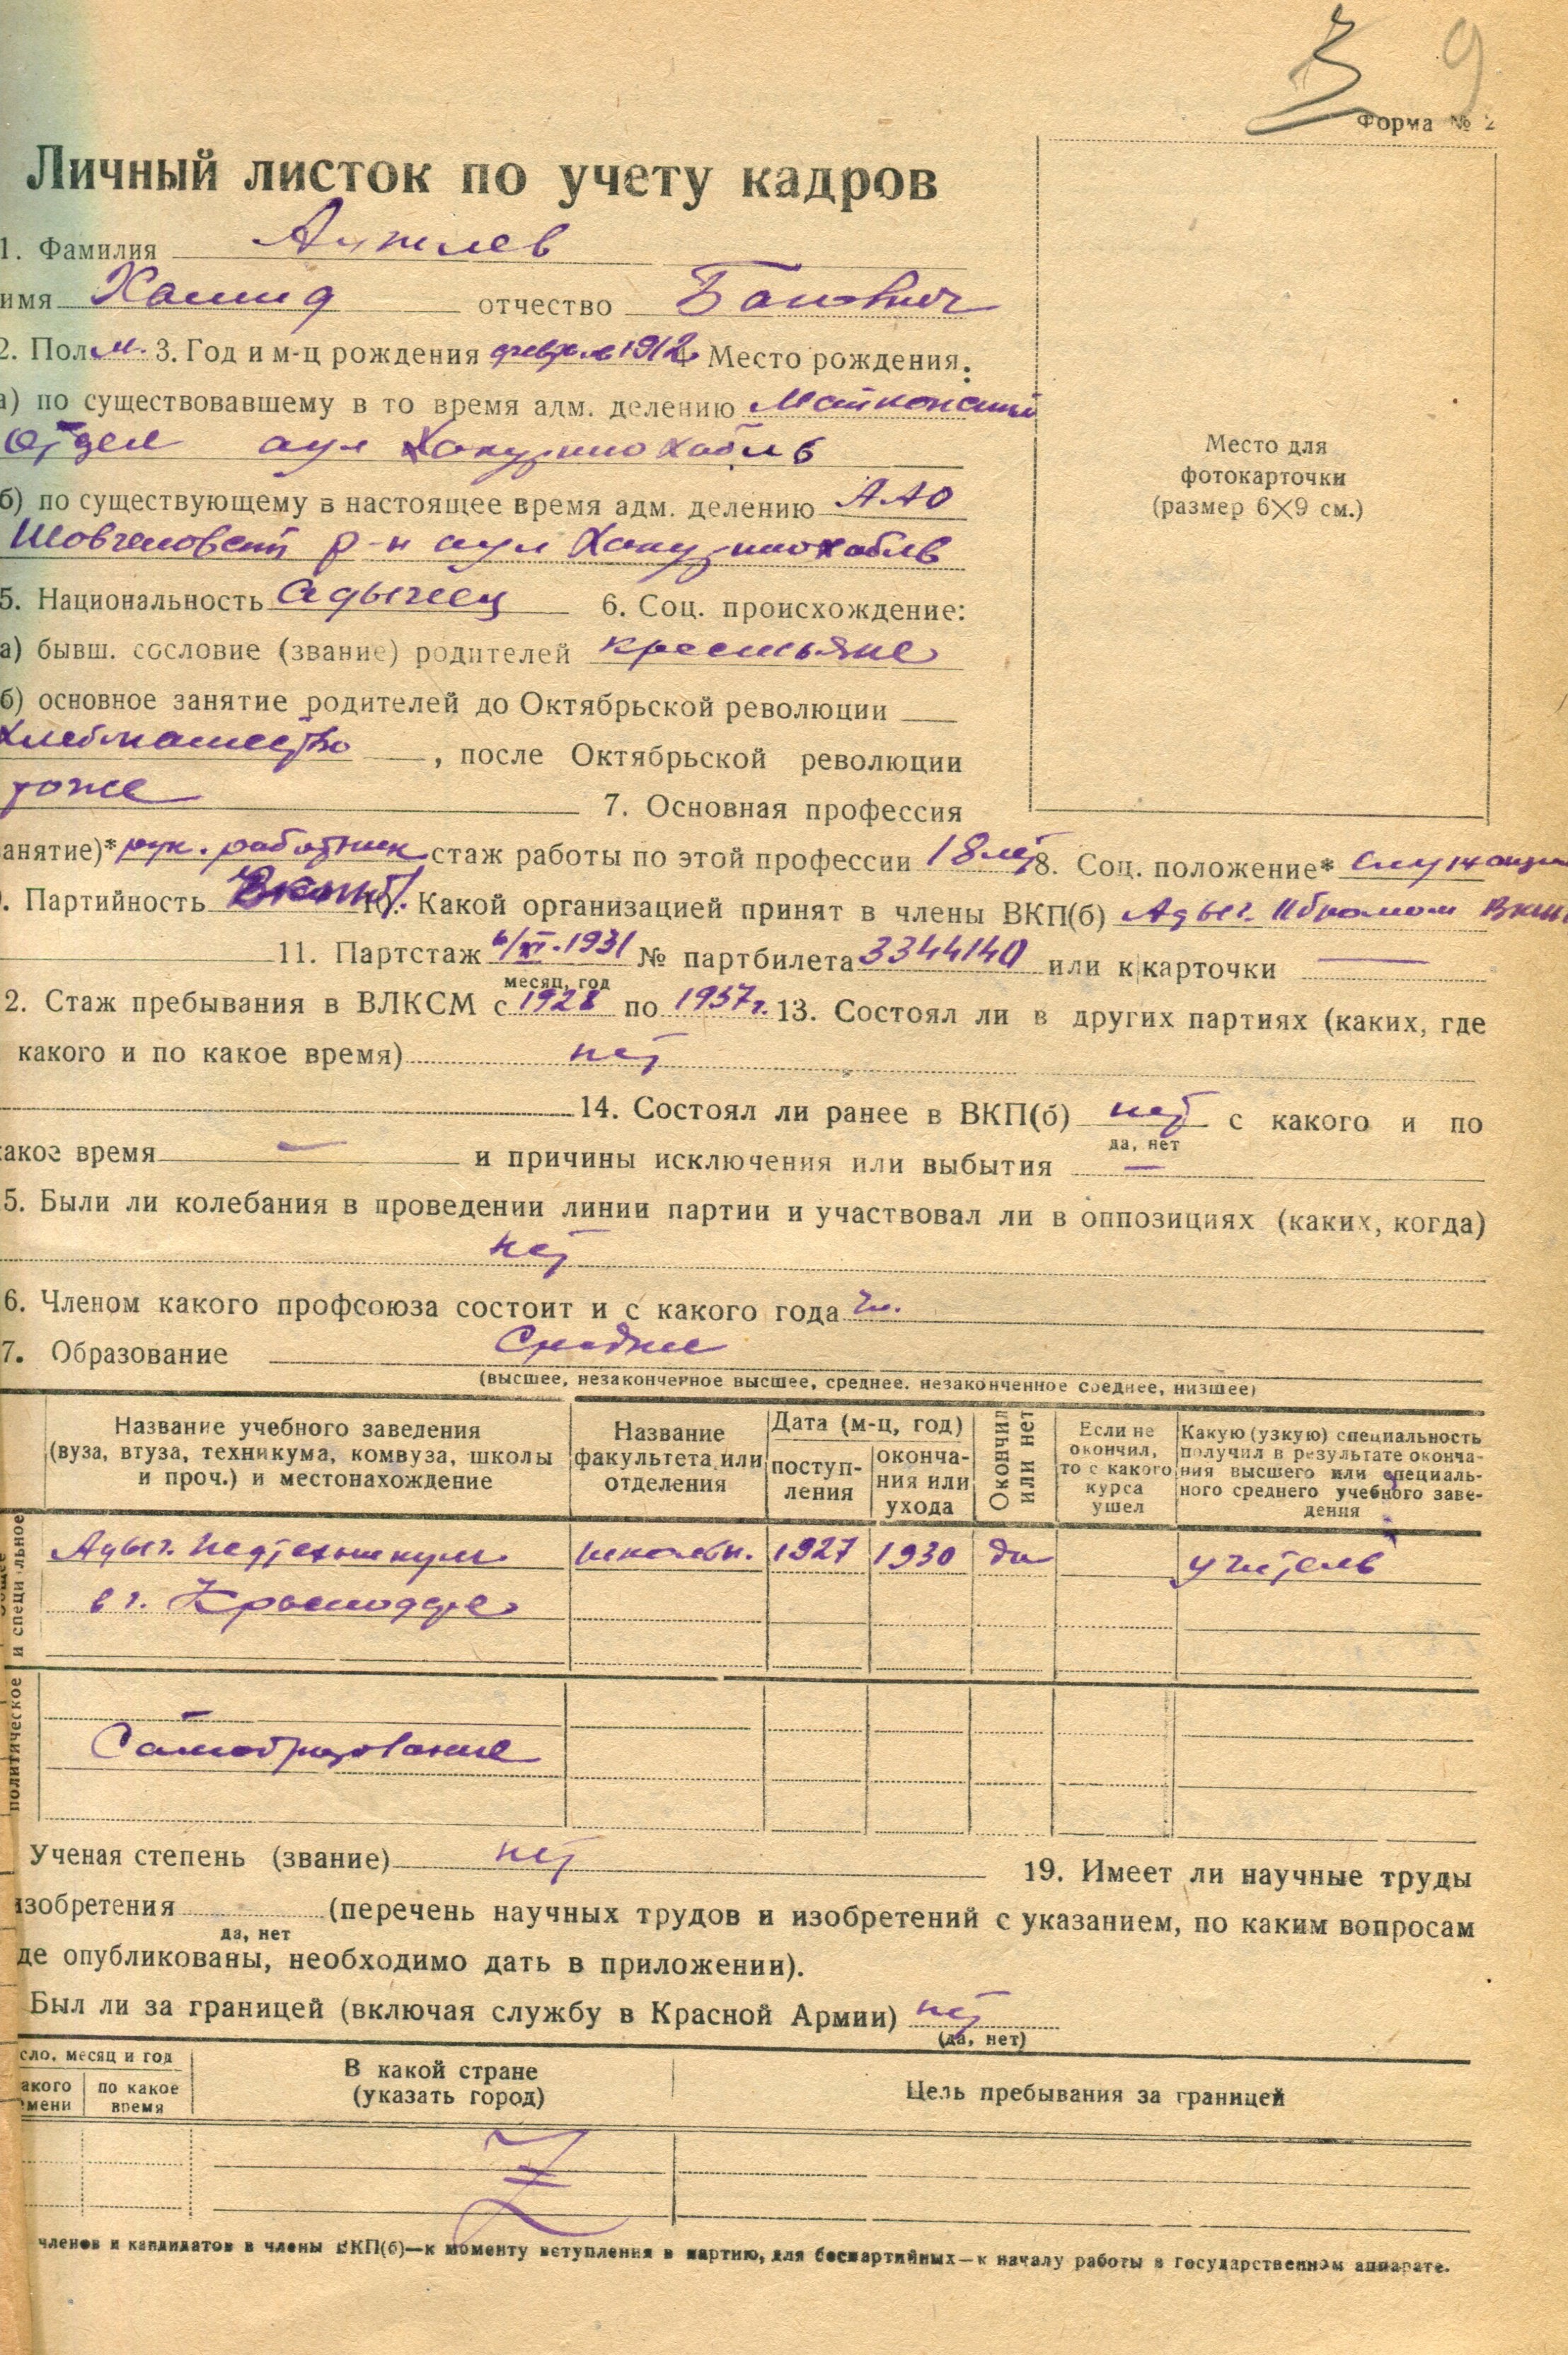 3 9
Форма № 2
Личный листок по учету кадров
1. Фамилия
имя Хамид отчество
2. Пол м. 3. Год и м-ц рождения февраль 1912 4 Место рождения:
а) по существовавшему в то время адм. делению Майкопский
Отдел аул Хакуринохабль
б) по существующему в настоящее время адм. делению ААО
Шовгеновский р-н аул Хакуринохабль
5. Национальность адыгеец 6. Соц. происхождение:
а) бывш. сословие (звание) родителей крестьяне
б) основное занятие родителей до Октябрьской революции
Хлебопашество, после Октябрьской революции
тоже 7. Основная профессия
анятие)* рук. работник стаж работы по этой профессии 18 лет 8. Соц. положение* служащи
. Партийность ВКП(б) 10. Какой организацией принят в члены ВКП(б) Адыг. Обкомом ВКП
11. Партстаж 6/XI-1931 № партбилета 3344140 или к карточки —
месяц, год
2. Стаж пребывания в ВЛКСМ с 1928 по 1937 г. 13. Состоял ли в других партиях (каких, где
какого и по какое время) нет
14. Состоял ли ранее в ВКП(б) нет с какого и по
да, нет
акое время — и причины исключения или выбытия —
5. Были ли колебания в проведении линии партии и участвовал ли в оппозициях (каких, когда)
нет
6. Членом какого профсоюза состоит и с какого года
7. Образование Среднее
(высшее, незаконченное высшее, среднее, незаконченное среднее, низшее)
Название учебного заведения (вуза, втуза, техникума, комвуза, школы и проч.) и местонахождение
Название факультета или отделения
Дата (м-ц, год)
поступ-ления
оконча-ния или ухода
Окончил или нет
Если не окончил, то с какого курса ушел
Какую (узкую) специальность получил в результате оконча-ния высшего или специаль-ного среднего учебного заве-дения
и специальное
Адыг. Педтехникум школьн. 1927 1930 да учитель
в г. Краснодаре
политическое
Самообразование
Ученая степень (звание) нет 19. Имеет ли научные труды
изобретения (перечень научных трудов и изобретений с указанием, по каким вопросам
да, нет
де опубликованы, необходимо дать в приложении).
Был ли за границей (включая службу в Красной Армии) нет
(да, нет)
сло, месяц и год
акого мени
по какое время
В какой стране (указать город)
Цель пребывания за границей
членов и кандидатов в члены ВКП(б)—к моменту вступления в партию, для беспартийных—к началу работы в государственном аппарате.
Место для
фотокарточки
(размер 6×9 см.)